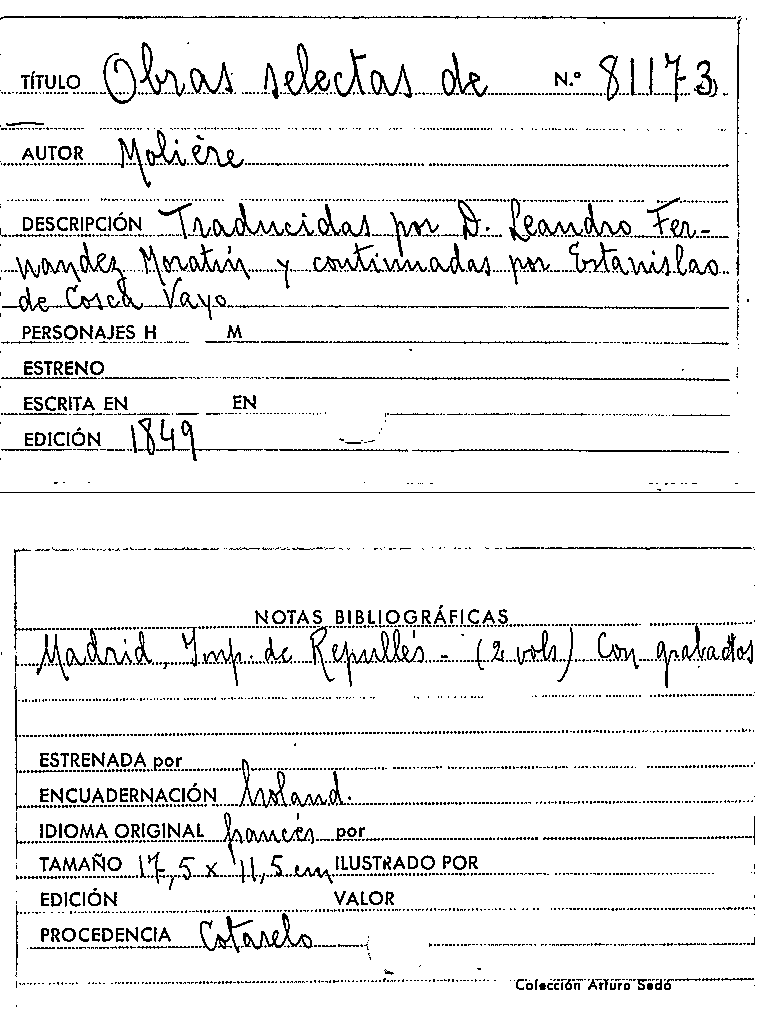 TÍTULO Obras selectas de N.º 81173
AUTOR Molière
DESCRIPCIÓN Traducidas por D. Leandro Fer-
nandez Moratín y continuadas por Estanislao
de Cosca Vayo
PERSONAJES H M
ESTRENO
ESCRITA EN EN
EDICIÓN 1849
NOTAS BIBLIOGRÁFICAS
Madrid, Imp. de Repullés - (2 vols) Con grabados
ESTRENADA por
ENCUADERNACIÓN holand.
IDIOMA ORIGINAL francés por
TAMAÑO 17,5 x 11,5 cm ILUSTRADO POR
EDICIÓN VALOR
PROCEDENCIA Cotarelo
Colección Arturo Sedó